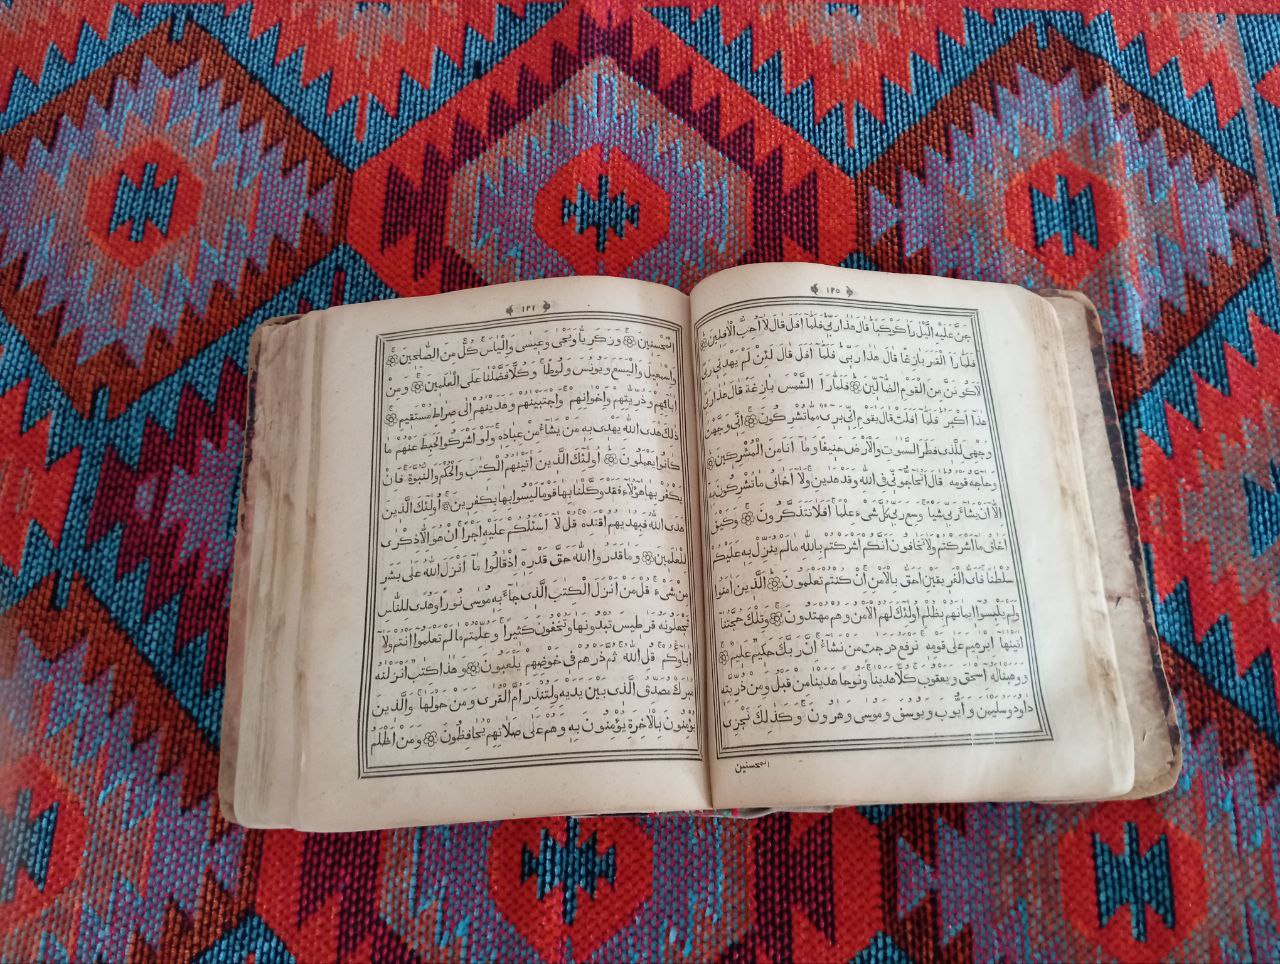 ١٣٥
جَنَّ عَلَيْهِ الَّيْلُ رَاٰ كَوْكَبًا ۚ قَالَ هٰذَا رَبِّي ۚ فَلَمَّآ اَفَلَ قَالَ لَآ اُحِبُّ الْاٰفِلِيْنَ
فَلَمَّا رَاَ الْقَمَرَ بَازِغًا قَالَ هٰذَا رَبِّي ۚ فَلَمَّآ اَفَلَ قَالَ لَئِنْ لَّمْ يَهْدِنِي رَبِّي
لَاَكُوْنَنَّ مِنَ الْقَوْمِ الضَّآلِّيْنَ فَلَمَّا رَاَ الشَّمْسَ بَازِغَةً قَالَ هٰذَا رَبِّي
هٰذَآ اَكْبَرُ ۚ فَلَمَّآ اَفَلَتْ قَالَ يٰقَوْمِ اِنِّي بَرِيْٓءٌ مِّمَّا تُشْرِكُوْنَ اِنِّي وَجَّهْتُ
وَجْهِيَ لِلَّذِي فَطَرَ السَّمٰوٰتِ وَالْاَرْضَ حَنِيْفًا وَّمَآ اَنَا مِنَ الْمُشْرِكِيْنَ
وَحَآجَّهٗ قَوْمُهٗ ۚ قَالَ اَتُحَآجُّوْٓنِّي فِي اللّٰهِ وَقَدْ هَدٰىنِ ۚ وَلَآ اَخَافُ مَا تُشْرِكُوْنَ بِهٖٓ
اِلَّآ اَنْ يَّشَآءَ رَبِّي شَيْـًٔا ۚ وَسِعَ رَبِّي كُلَّ شَيْءٍ عِلْمًا ۚ اَفَلَا تَتَذَكَّرُوْنَ وَكَيْفَ
اَخَافُ مَآ اَشْرَكْتُمْ وَلَا تَخَافُوْنَ اَنَّكُمْ اَشْرَكْتُمْ بِاللّٰهِ مَا لَمْ يُنَزِّلْ بِهٖ عَلَيْكُمْ
سُلْطٰنًا ۚ فَاَيُّ الْفَرِيْقَيْنِ اَحَقُّ بِالْاَمْنِ ۚ اِنْ كُنْتُمْ تَعْلَمُوْنَ اَلَّذِيْنَ اٰمَنُوْا
وَلَمْ يَلْبِسُوْٓا اِيْمَانَهُمْ بِظُلْمٍ اُولٰٓئِكَ لَهُمُ الْاَمْنُ وَهُمْ مُّهْتَدُوْنَ وَتِلْكَ حُجَّتُنَآ
اٰتَيْنٰهَآ اِبْرٰهِيْمَ عَلٰى قَوْمِهٖ ۚ نَرْفَعُ دَرَجٰتٍ مَّنْ نَّشَآءُ ۚ اِنَّ رَبَّكَ حَكِيْمٌ عَلِيْمٌ
وَوَهَبْنَا لَهٗٓ اِسْحٰقَ وَيَعْقُوْبَ ۚ كُلًّا هَدَيْنَا ۚ وَنُوْحًا هَدَيْنَا مِنْ قَبْلُ وَمِنْ ذُرِّيَّتِهٖ
دَاوٗدَ وَسُلَيْمٰنَ وَاَيُّوْبَ وَيُوْسُفَ وَمُوْسٰى وَهٰرُوْنَ ۚ وَكَذٰلِكَ نَجْزِي
المحسنين
١٣٦
الْمُحْسِنِيْنَ وَزَكَرِيَّا وَيَحْيٰى وَعِيْسٰى وَاِلْيَاسَ ۚ كُلٌّ مِّنَ الصّٰلِحِيْنَ
وَاِسْمٰعِيْلَ وَالْيَسَعَ وَيُوْنُسَ وَلُوْطًا ۚ وَكُلًّا فَضَّلْنَا عَلَى الْعٰلَمِيْنَ وَمِنْ
اٰبَآئِهِمْ وَذُرِّيّٰتِهِمْ وَاِخْوَانِهِمْ ۚ وَاجْتَبَيْنٰهُمْ وَهَدَيْنٰهُمْ اِلٰى صِرَاطٍ مُّسْتَقِيْمٍ
ذٰلِكَ هُدَى اللّٰهِ يَهْدِي بِهٖ مَنْ يَّشَآءُ مِنْ عِبَادِهٖ ۚ وَلَوْ اَشْرَكُوْا لَحَبِطَ عَنْهُمْ مَّا
كَانُوْا يَعْمَلُوْنَ اُولٰٓئِكَ الَّذِيْنَ اٰتَيْنٰهُمُ الْكِتٰبَ وَالْحُكْمَ وَالنُّبُوَّةَ ۚ فَاِنْ
يَّكْفُرْ بِهَا هٰٓؤُلَآءِ فَقَدْ وَكَّلْنَا بِهَا قَوْمًا لَّيْسُوْا بِهَا بِكٰفِرِيْنَ اُولٰٓئِكَ الَّذِيْنَ
هَدَى اللّٰهُ فَبِهُدٰىهُمُ اقْتَدِهْ ۚ قُلْ لَّآ اَسْـَٔلُكُمْ عَلَيْهِ اَجْرًا ۚ اِنْ هُوَ اِلَّا ذِكْرٰى
لِلْعٰلَمِيْنَ وَمَا قَدَرُوا اللّٰهَ حَقَّ قَدْرِهٖٓ اِذْ قَالُوْا مَآ اَنْزَلَ اللّٰهُ عَلٰى بَشَرٍ
مِّنْ شَيْءٍ ۚ قُلْ مَنْ اَنْزَلَ الْكِتٰبَ الَّذِي جَآءَ بِهٖ مُوْسٰى نُوْرًا وَّهُدًى لِّلنَّاسِ
تَجْعَلُوْنَهٗ قَرَاطِيْسَ تُبْدُوْنَهَا وَتُخْفُوْنَ كَثِيْرًا ۚ وَعُلِّمْتُمْ مَّا لَمْ تَعْلَمُوْٓا اَنْتُمْ وَلَآ
اٰبَآؤُكُمْ ۚ قُلِ اللّٰهُ ۙ ثُمَّ ذَرْهُمْ فِي خَوْضِهِمْ يَلْعَبُوْنَ وَهٰذَا كِتٰبٌ اَنْزَلْنٰهُ
مُبٰرَكٌ مُّصَدِّقُ الَّذِي بَيْنَ يَدَيْهِ وَلِتُنْذِرَ اُمَّ الْقُرٰى وَمَنْ حَوْلَهَا ۚ وَالَّذِيْنَ
يُؤْمِنُوْنَ بِالْاٰخِرَةِ يُؤْمِنُوْنَ بِهٖ وَهُمْ عَلٰى صَلَاتِهِمْ يُحَافِظُوْنَ وَمَنْ اَظْلَمُ